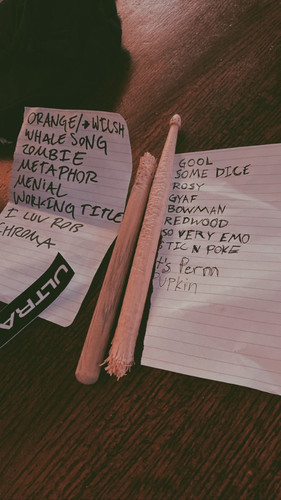 ORANGE/→WILSH
WHALE SONG
ZOMBIE
METAPHOR
MENIAL
WORKING TITLE
I LUV ROB
CHROMA
ULTRA
GOOL
SOME DICE
ROSY
GYAF
BOWMAN
REDWOOD
SO VERY EMO
STIC N POKE
t's Perm
upkin